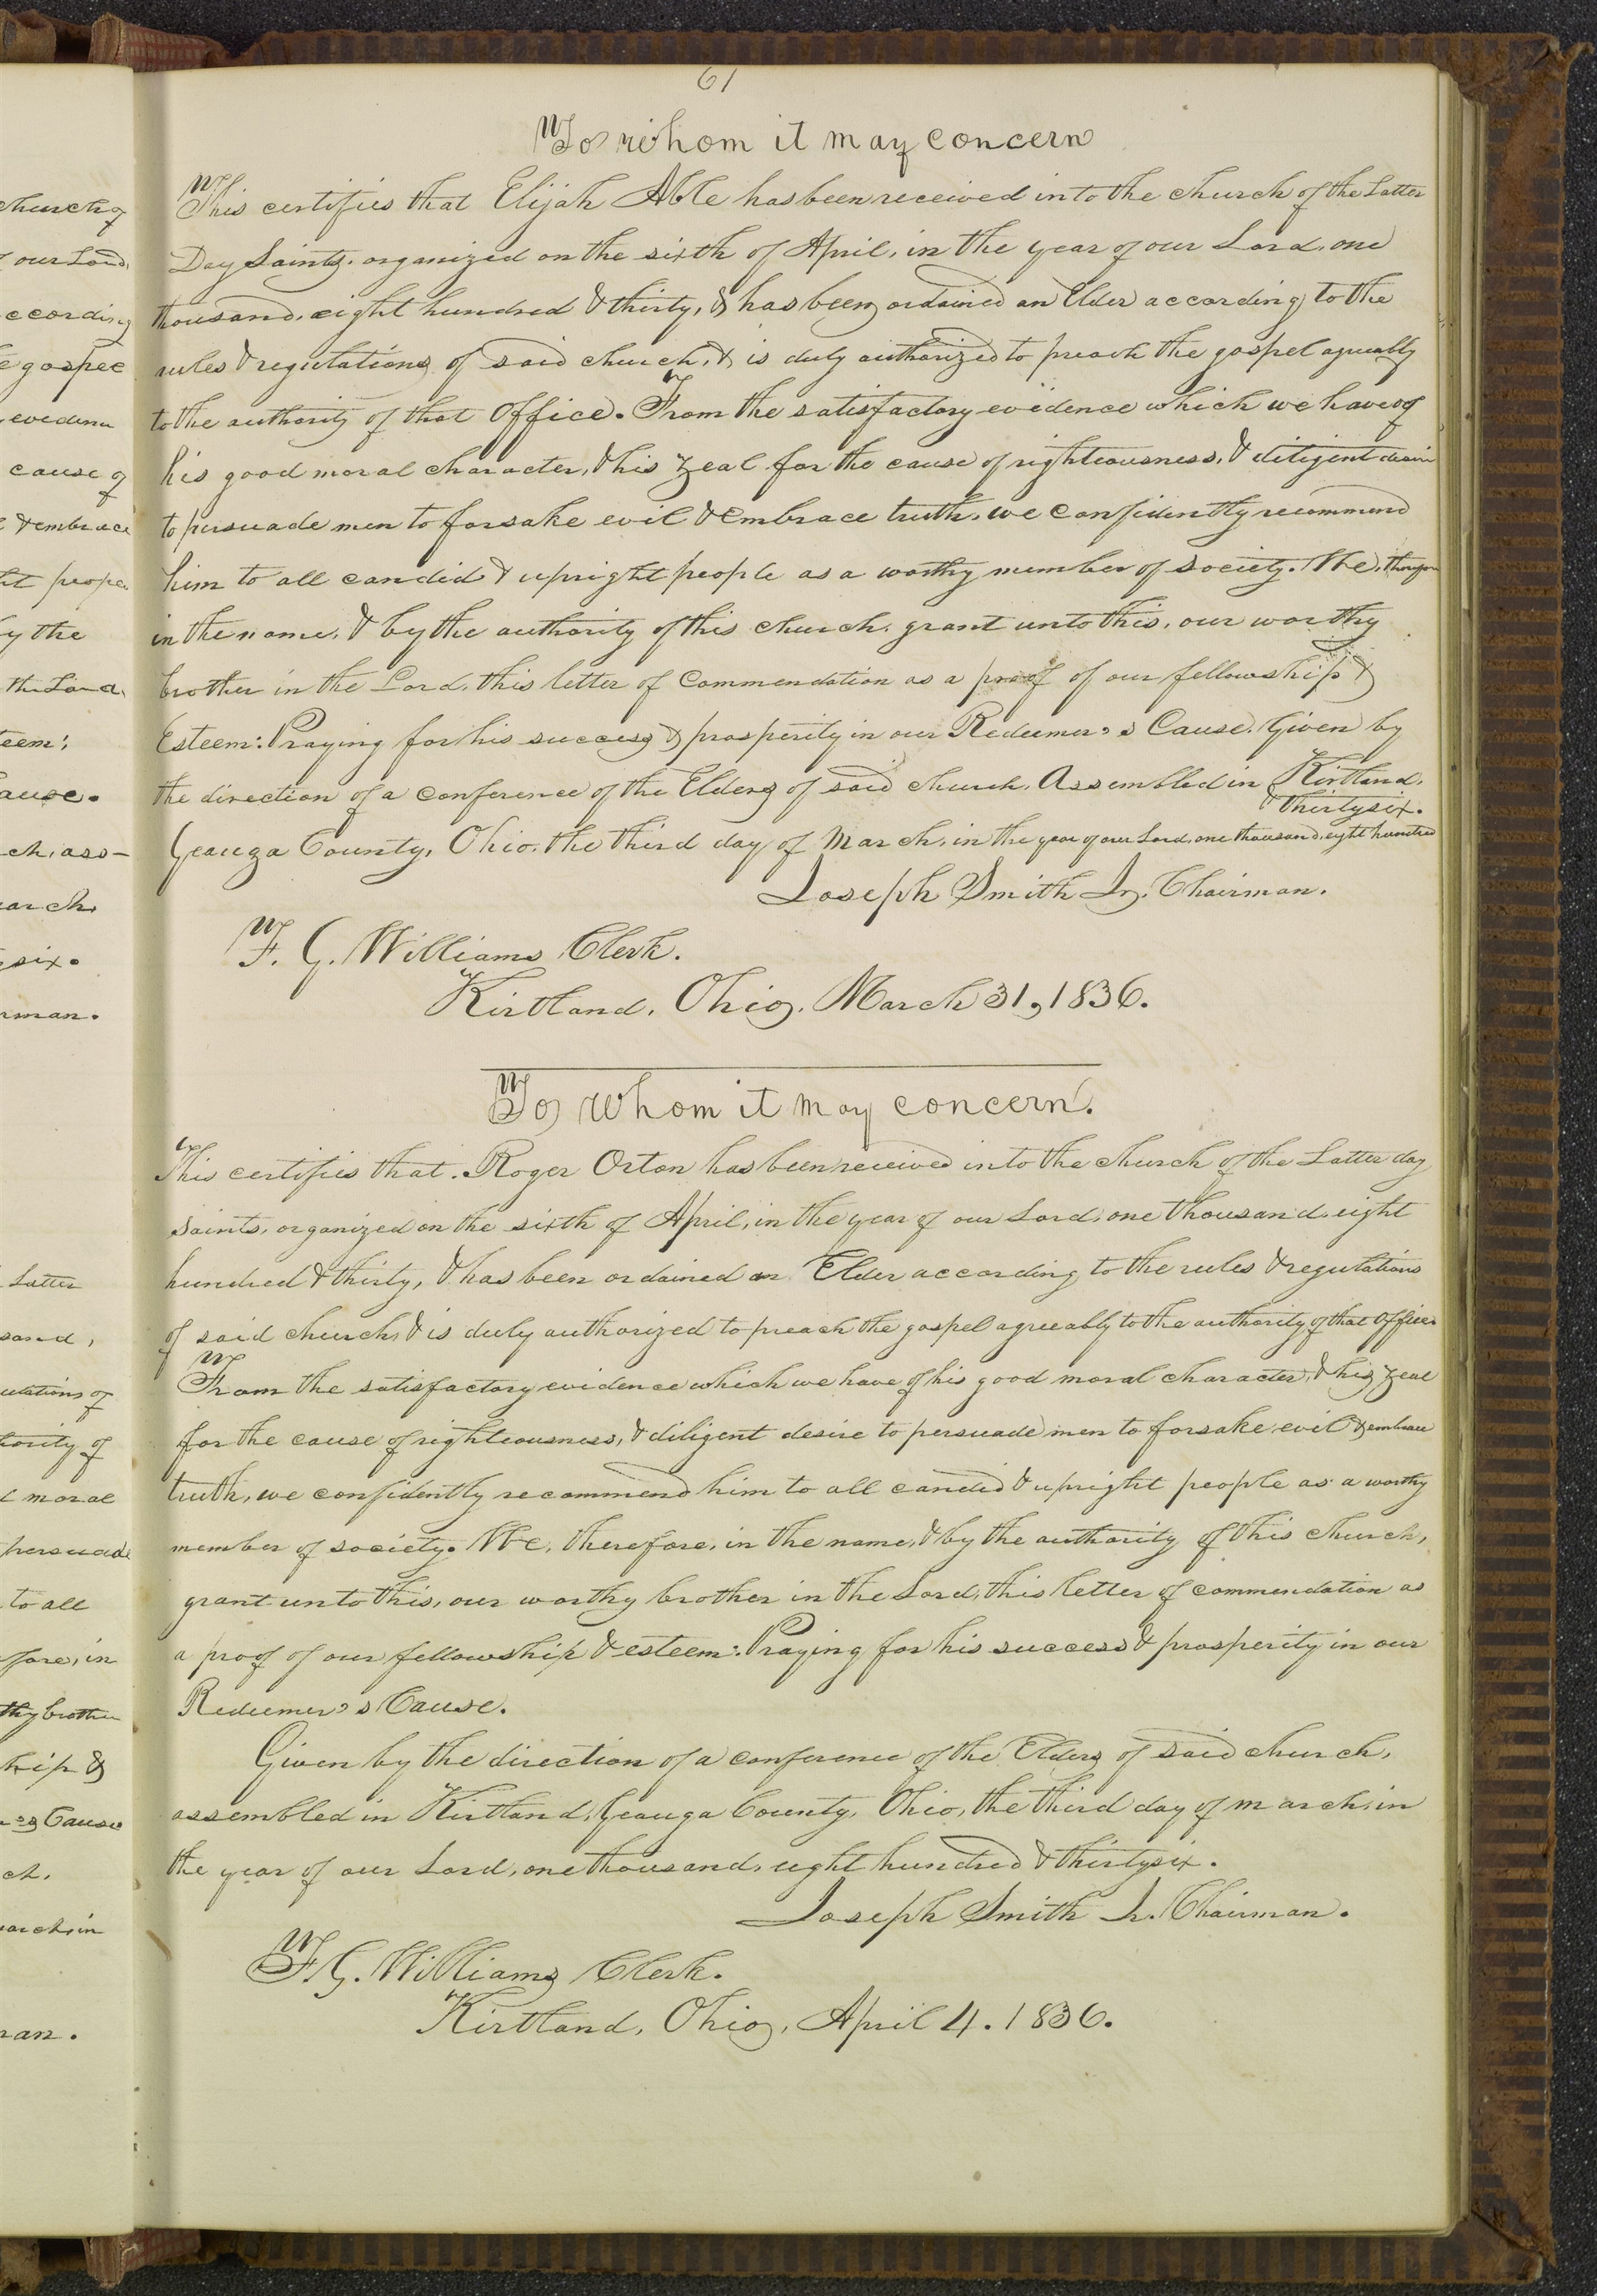 church of
of our Lord,
according
e gospel
evidence
cause of
& embrace
ht people
by the
the Lord,
teem:
Cause.
ch, ass-
arch
six.
rman.
Latter
sand,
ulations of
hority of
l moral
persuade
to all
fore, in
thy brother
hip &
r's Cause
ch,
arch, in
man.
61
To whom it may concern
This certifies that Elijah Able has been received into the church of the Latter
Day Saints, organized on the sixth of April, in the year of our Lord, one
thousand, eight hundred & thirty, & has been ordained an Elder according to the
rules & regulations of said church, & is duly authorized to preach the gospel agreeably
to the authority of that Office. From the satisfactory evidence which we have of
his good moral character, & his zeal for the cause of righteousness, & diligent desire
to persuade men to forsake evil & embrace truth, we confidently recommend
him to all candid & upright people as a worthy member of society. We, therefore
in the name, & by the authority of this church, grant unto this, our worthy
brother in the Lord, this letter of Commendation as a proof of our fellowship &
Esteem: Praying for his success & prosperity in our Redeemer's Cause. Given by
the direction of a conference of the Elders of said church, Assembled in Kirtland,
& thirtysix.
Geauga County, Ohio, the third day of March, in the year of our Lord, one thousand, eight hundred
Joseph Smith Jr. Chairman.
F. G. Williams Clerk.
Kirtland, Ohio, March 31, 1836.
To whom it may concern.
This certifies that Roger Orton has been received into the church of the Latter day
saints, organized on the sixth of April, in the year of our Lord, one thousand, eight
hundred & thirty, & has been ordained an Elder according to the rules & regulations
of said church, & is duly authorized to preach the gospel agreeably to the authority of that Office.
From the satisfactory evidence which we have of his good moral character, & his zeal
for the cause of righteousness, & diligent desire to persuade men to forsake evil & embrace
truth, we confidently recommend him to all candid & upright people as a worthy
member of society. We, therefore, in the name, & by the authority of this church,
grant unto this, our worthy brother in the Lord, this letter of commendation as
a proof of our fellowship & esteem: Praying for his success & prosperity in our
Redeemer's Cause.
Given by the direction of a conference of the Elders of said church,
assembled in Kirtland, Geauga County, Ohio, the third day of march, in
the year of our Lord, one thousand, eight hundred & thirtysix.
Joseph Smith Jr. Chairman.
F. G. Williams Clerk.
Kirtland, Ohio, April 4. 1836.